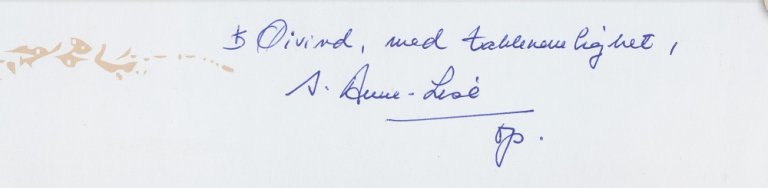 Øivind, med takknemlighet,
S. Anne-Lise
op.